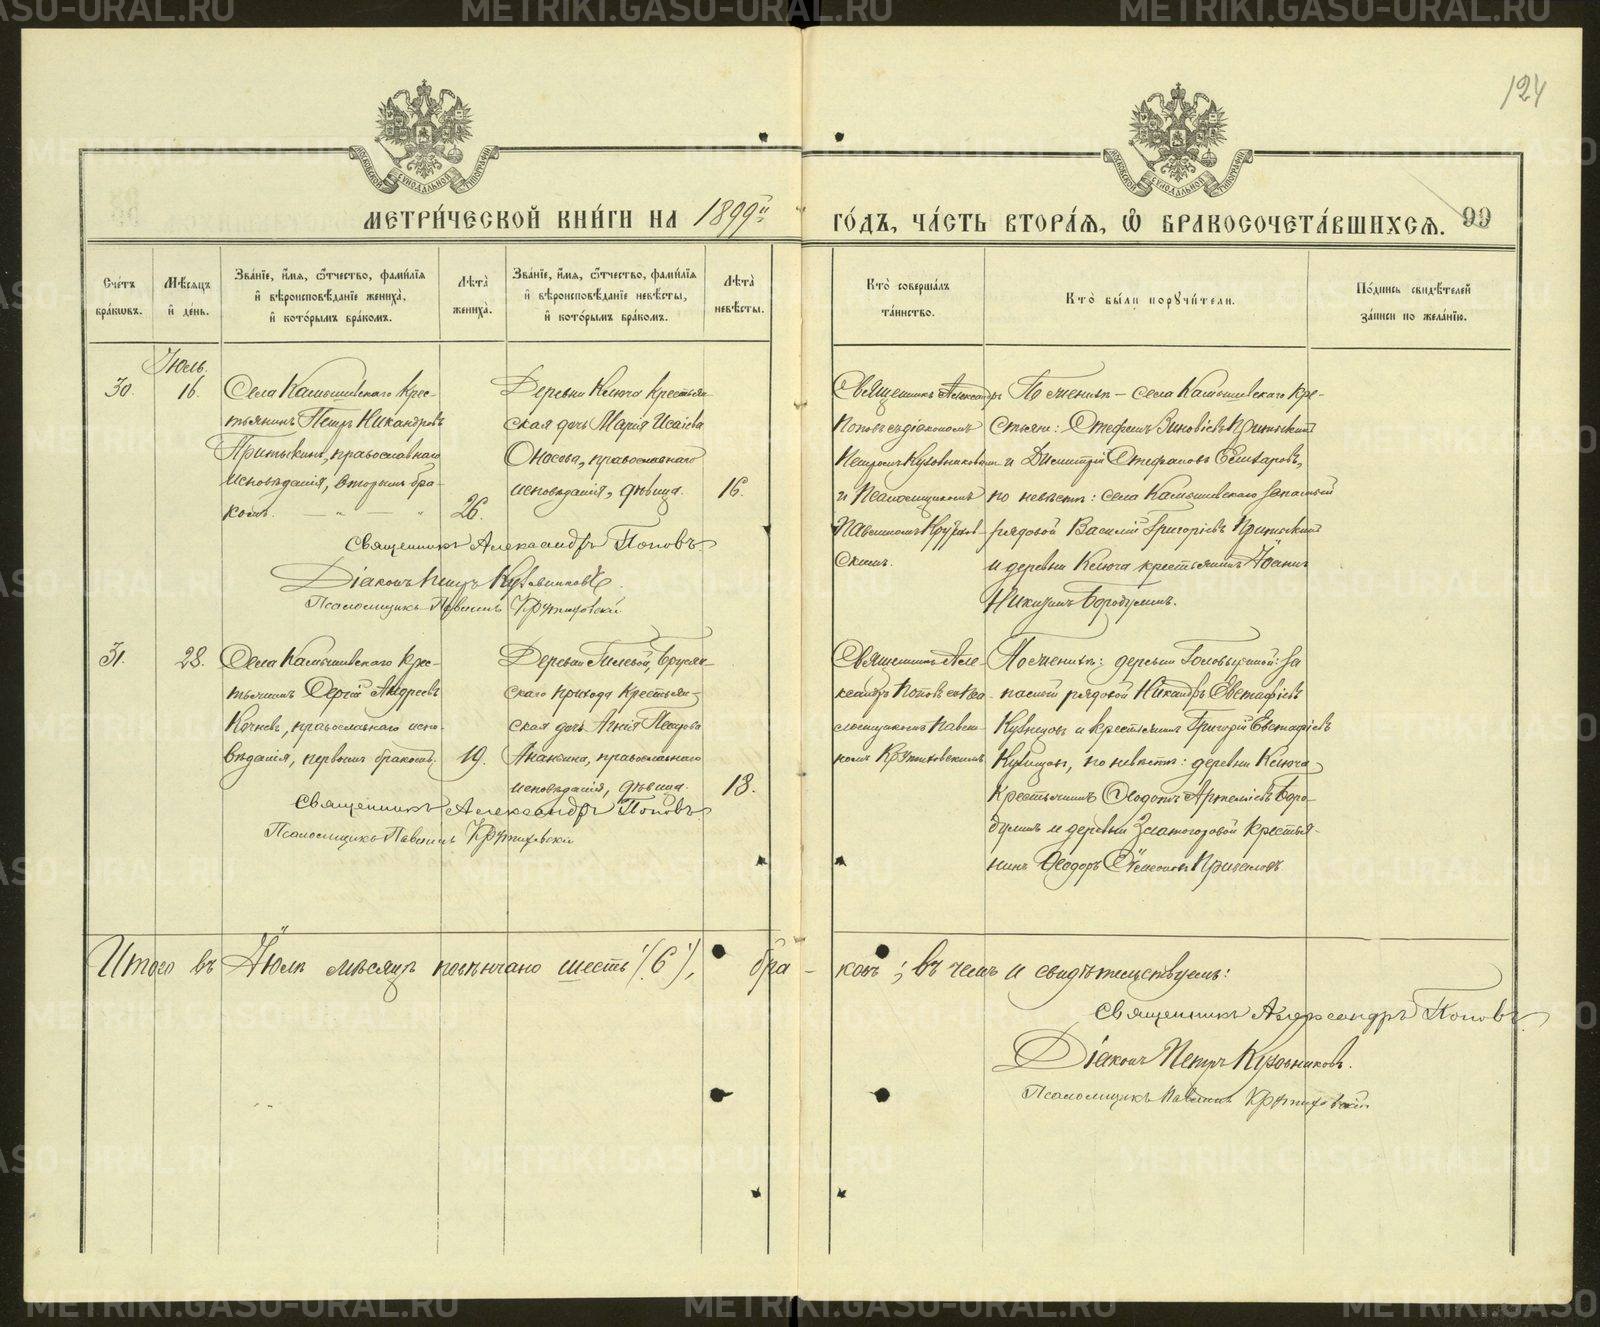 124
МЕТРИ́ЧЕСКОЙ КНИ́ГИ НА 1899й ГО́ДЪ, ЧА́СТЬ ВТОРА́Я, Ѡ БРАКОСОЧЕТА́ВШИХСЯ. 99
Сче́тъ бра́кωвъ.
Мѣ́сяцъ и҆ де́нь.
Зва́нїе, и҆́мя, ѻ҆́тчество, фами́лїя и҆ вѣроисповѣ́данїе жениха̀, и҆ кото́рымъ бра́комъ.
Лѣ́та̀ жениха̀.
Зва́нїе, и҆́мя, ѻ҆́тчество, фами́лїя и҆ вѣроисповѣ́данїе невѣ́сты, и҆ кото́рымъ бра́комъ.
Лѣ́та̀ невѣ́сты.
Кто̀ соверша́лъ та́инство.
Кто̀ бы́ли порꙋчи́тели.
По́дпись свидѣ́телей за́писи по жела́нїю.
Іюль.
30.
16.
Села Камышевскаго крес-
тьянинъ Петръ Никандровъ
Притыкинъ, православнаго
исповѣданія, вторымъ бра-
комъ.
26.
Деревни Ключа крестьян-
ская дочь Марія Исаіева
Оносова, православнаго
исповѣданія, дѣвица.
16.
Священникъ Александръ
Поповъ съ діакономъ
Петромъ Кузовниковымъ
и Псаломщикомъ
Павлиномъ Крутиков-
скимъ.
По женихѣ – села Камышевскаго кре-
стьяне: Стефанъ Зиновіевъ Притыкинъ
и Димитрій Стефановъ Елизаровъ,
по невѣстѣ: села Камышевскаго запасный
рядовой Василій Григоріевъ Притыкинъ
и деревни Ключа крестьянинъ Іоаннъ
Никитинъ Бородулинъ.
Священникъ Александръ Поповъ
Діаконъ Петръ Кузовниковъ.
Псаломщикъ Павлинъ Крутиховскій
31.
28.
Села Камышевскаго крес-
тьянинъ Сергій Андреевъ
Кочневъ, православнаго испо-
вѣданія, первымъ бракомъ.
19.
Деревни Гилевой, Брусян-
скаго прихода крестьян-
ская дочь Агнія Петрова
Ананьина, православнаго
исповѣданія, дѣвица.
18.
Священникъ Але-
ксандръ Поповъ съ Пса-
ломщикомъ Павли-
номъ Крутиховскимъ
По женихѣ: деревни Головыриной: за-
пасный рядовой Никандръ Евстафіевъ
Кузнецовъ и крестьянинъ Григорій Евстафіевъ
Кузнецовъ, по невѣстѣ: деревни Ключа
крестьянинъ Ѳеодотъ Артеміевъ Боро-
дулинъ и деревни Златогоровой крестья-
нинъ Ѳеодоръ Симеоновъ
Священникъ Александръ Поповъ
Псаломщикъ Павлинъ Крутиховскій
Итого въ Іюлѣ мѣсяцѣ повѣнчано шесть (6), бра-ковъ; въ чемъ и свидѣтельствуемъ:
Священникъ Александръ Поповъ
Діаконъ Петръ Кузовниковъ.
Псаломщикъ Павлинъ Крутиховскій
METRIKI.GASO-URAL.RU